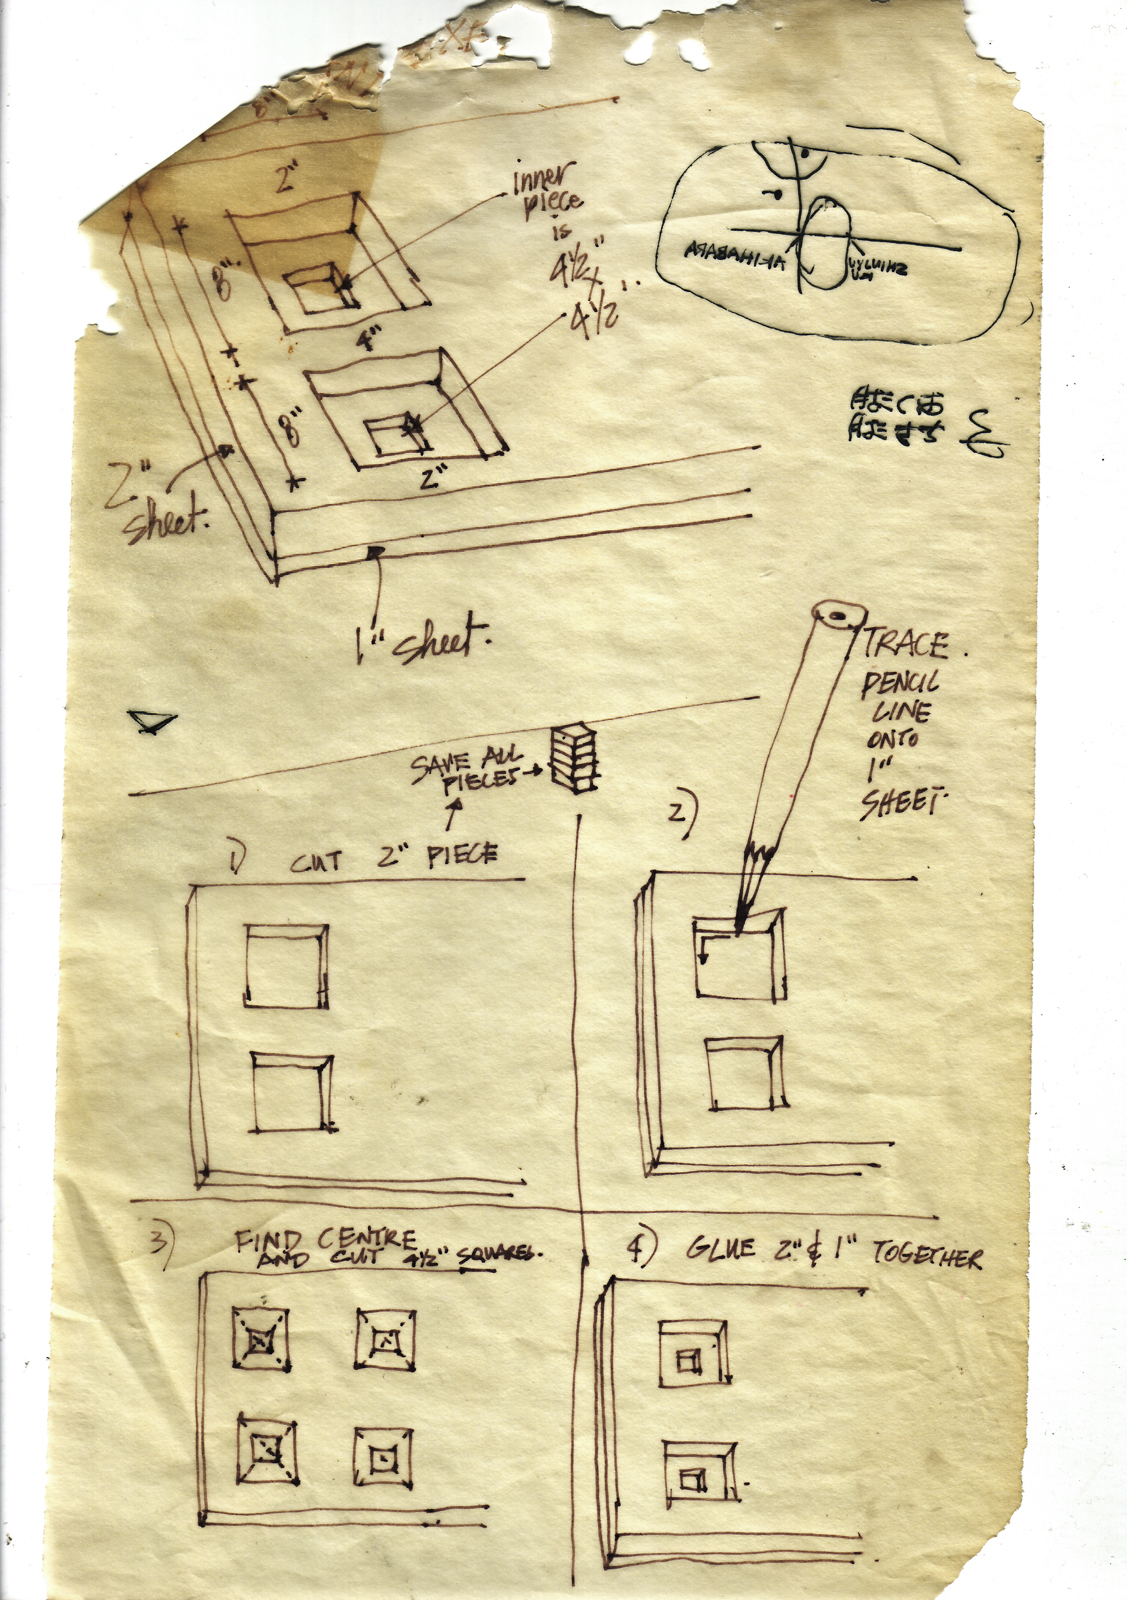 8"
2"
inner
piece
is
4½"
x
4½"
8"
4"
8"
2"
2"
sheet.
1" sheet.
AKIHABARA
TRACE.
PENCIL
LINE
ONTO
1"
SHEET.
SAVE ALL
PIECES
1) CUT 2" PIECE
2)
3) FIND CENTRE
AND CUT 4½" SQUARES.
4) GLUE 2" & 1" TOGETHER